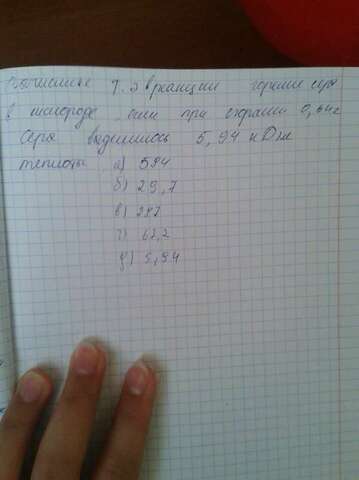 Вычислите Т.Э реакции горения серы
в кислороде если при сгорании 0,64г
Серы выделилось 5,94 кДж
теплоты а) 594
б) 29,7
в) 297
г) 62,2
д) 5,94